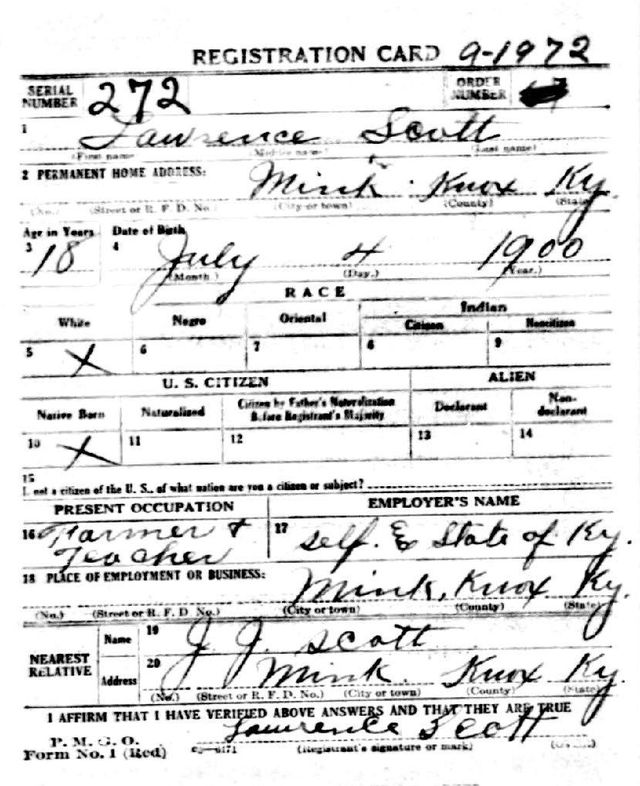 REGISTRATION CARD 9-1972
SERIAL NUMBER 272 ORDER NUMBER
1 Lawrence Scott
(First name) (Middle name) (Last name)
2 PERMANENT HOME ADDRESS: Mink Knox Ky.
(No.) (Street or R. F. D. No.) (City or town) (County) (State)
Age in Years Date of Birth
3 18 4 July 4 1900
(Month) (Day.) (Year.)
RACE
White Negro Oriental Indian
Citizen Noncitizen
5 X 6 7 8 9
U. S. CITIZEN ALIEN
Native Born Naturalized Citizen by Father's Naturalization Before Registrant's Majority Declarant Non-declarant
10 X 11 12 13 14
15
not a citizen of the U. S., of what nation are you a citizen or subject?
PRESENT OCCUPATION EMPLOYER'S NAME
16 Farmer & Teacher 17 self. & State of Ky.
18 PLACE OF EMPLOYMENT OR BUSINESS: Mink, Knox Ky.
(No.) (Street or R. F. D. No.) (City or town) (County) (State)
NEAREST RELATIVE Name 19 J. J. Scott
Address 20 Mink. Knox Ky.
(No.) (Street or R. F. D. No.) (City or town) (County) (State)
I AFFIRM THAT I HAVE VERIFIED ABOVE ANSWERS AND THAT THEY ARE TRUE
P. M. G. O.
Form No. 1 (Red) Lawrence Scott
(Registrant's signature or mark)